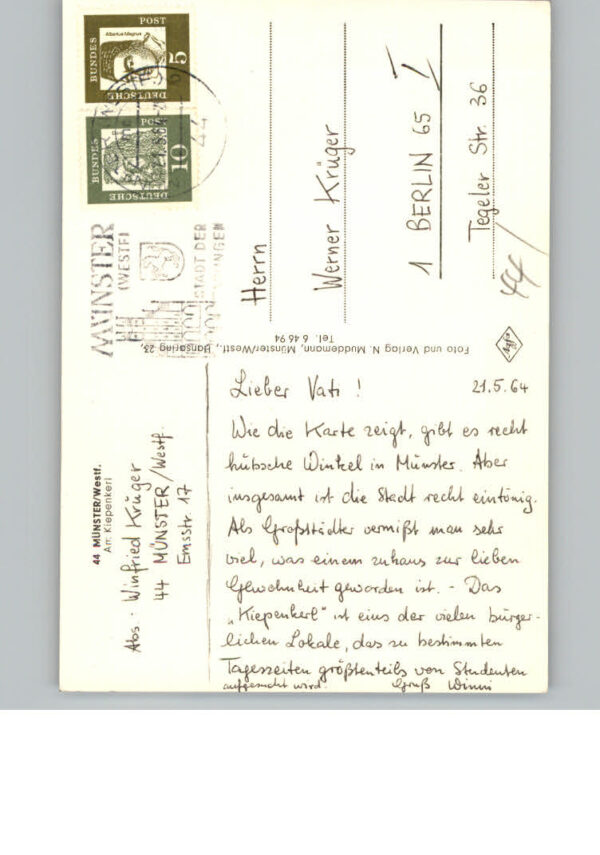 Lieber Vati !
21.5.64
Wie die Karte zeigt, gibt es recht
hübsche Winkel in Münster. Aber
insgesamt ist die Stadt recht eintönig.
Als Großstädter vermißt man sehr
viel, was einem zuhaus zur lieben
Gewohnheit geworden ist. - Das
„Kiepenkerl" ist eins der vielen bürger-
lichen Lokale, das zu bestimmten
Tageszeiten größtenteils von Studenten
aufgesucht wird. Gruß Winni
44 MÜNSTER/Westf.
Am Kiepenkerl
Abs. Winfried Krüger
44 MÜNSTER/Westf.
Emsstr. 17
Foto und Verlag N. Muddemann, Münster/Westf., Hansaring 23,
Tel. 6 46 94
Agfa
Herrn
Werner Krüger
1 BERLIN 65 I
Tegeler Str. 36
44
DEUTSCHE BUNDES POST
5
Albertus Magnus
DEUTSCHE BUNDES POST
10
44
MÜNSTER
(WESTF)
STADT DER